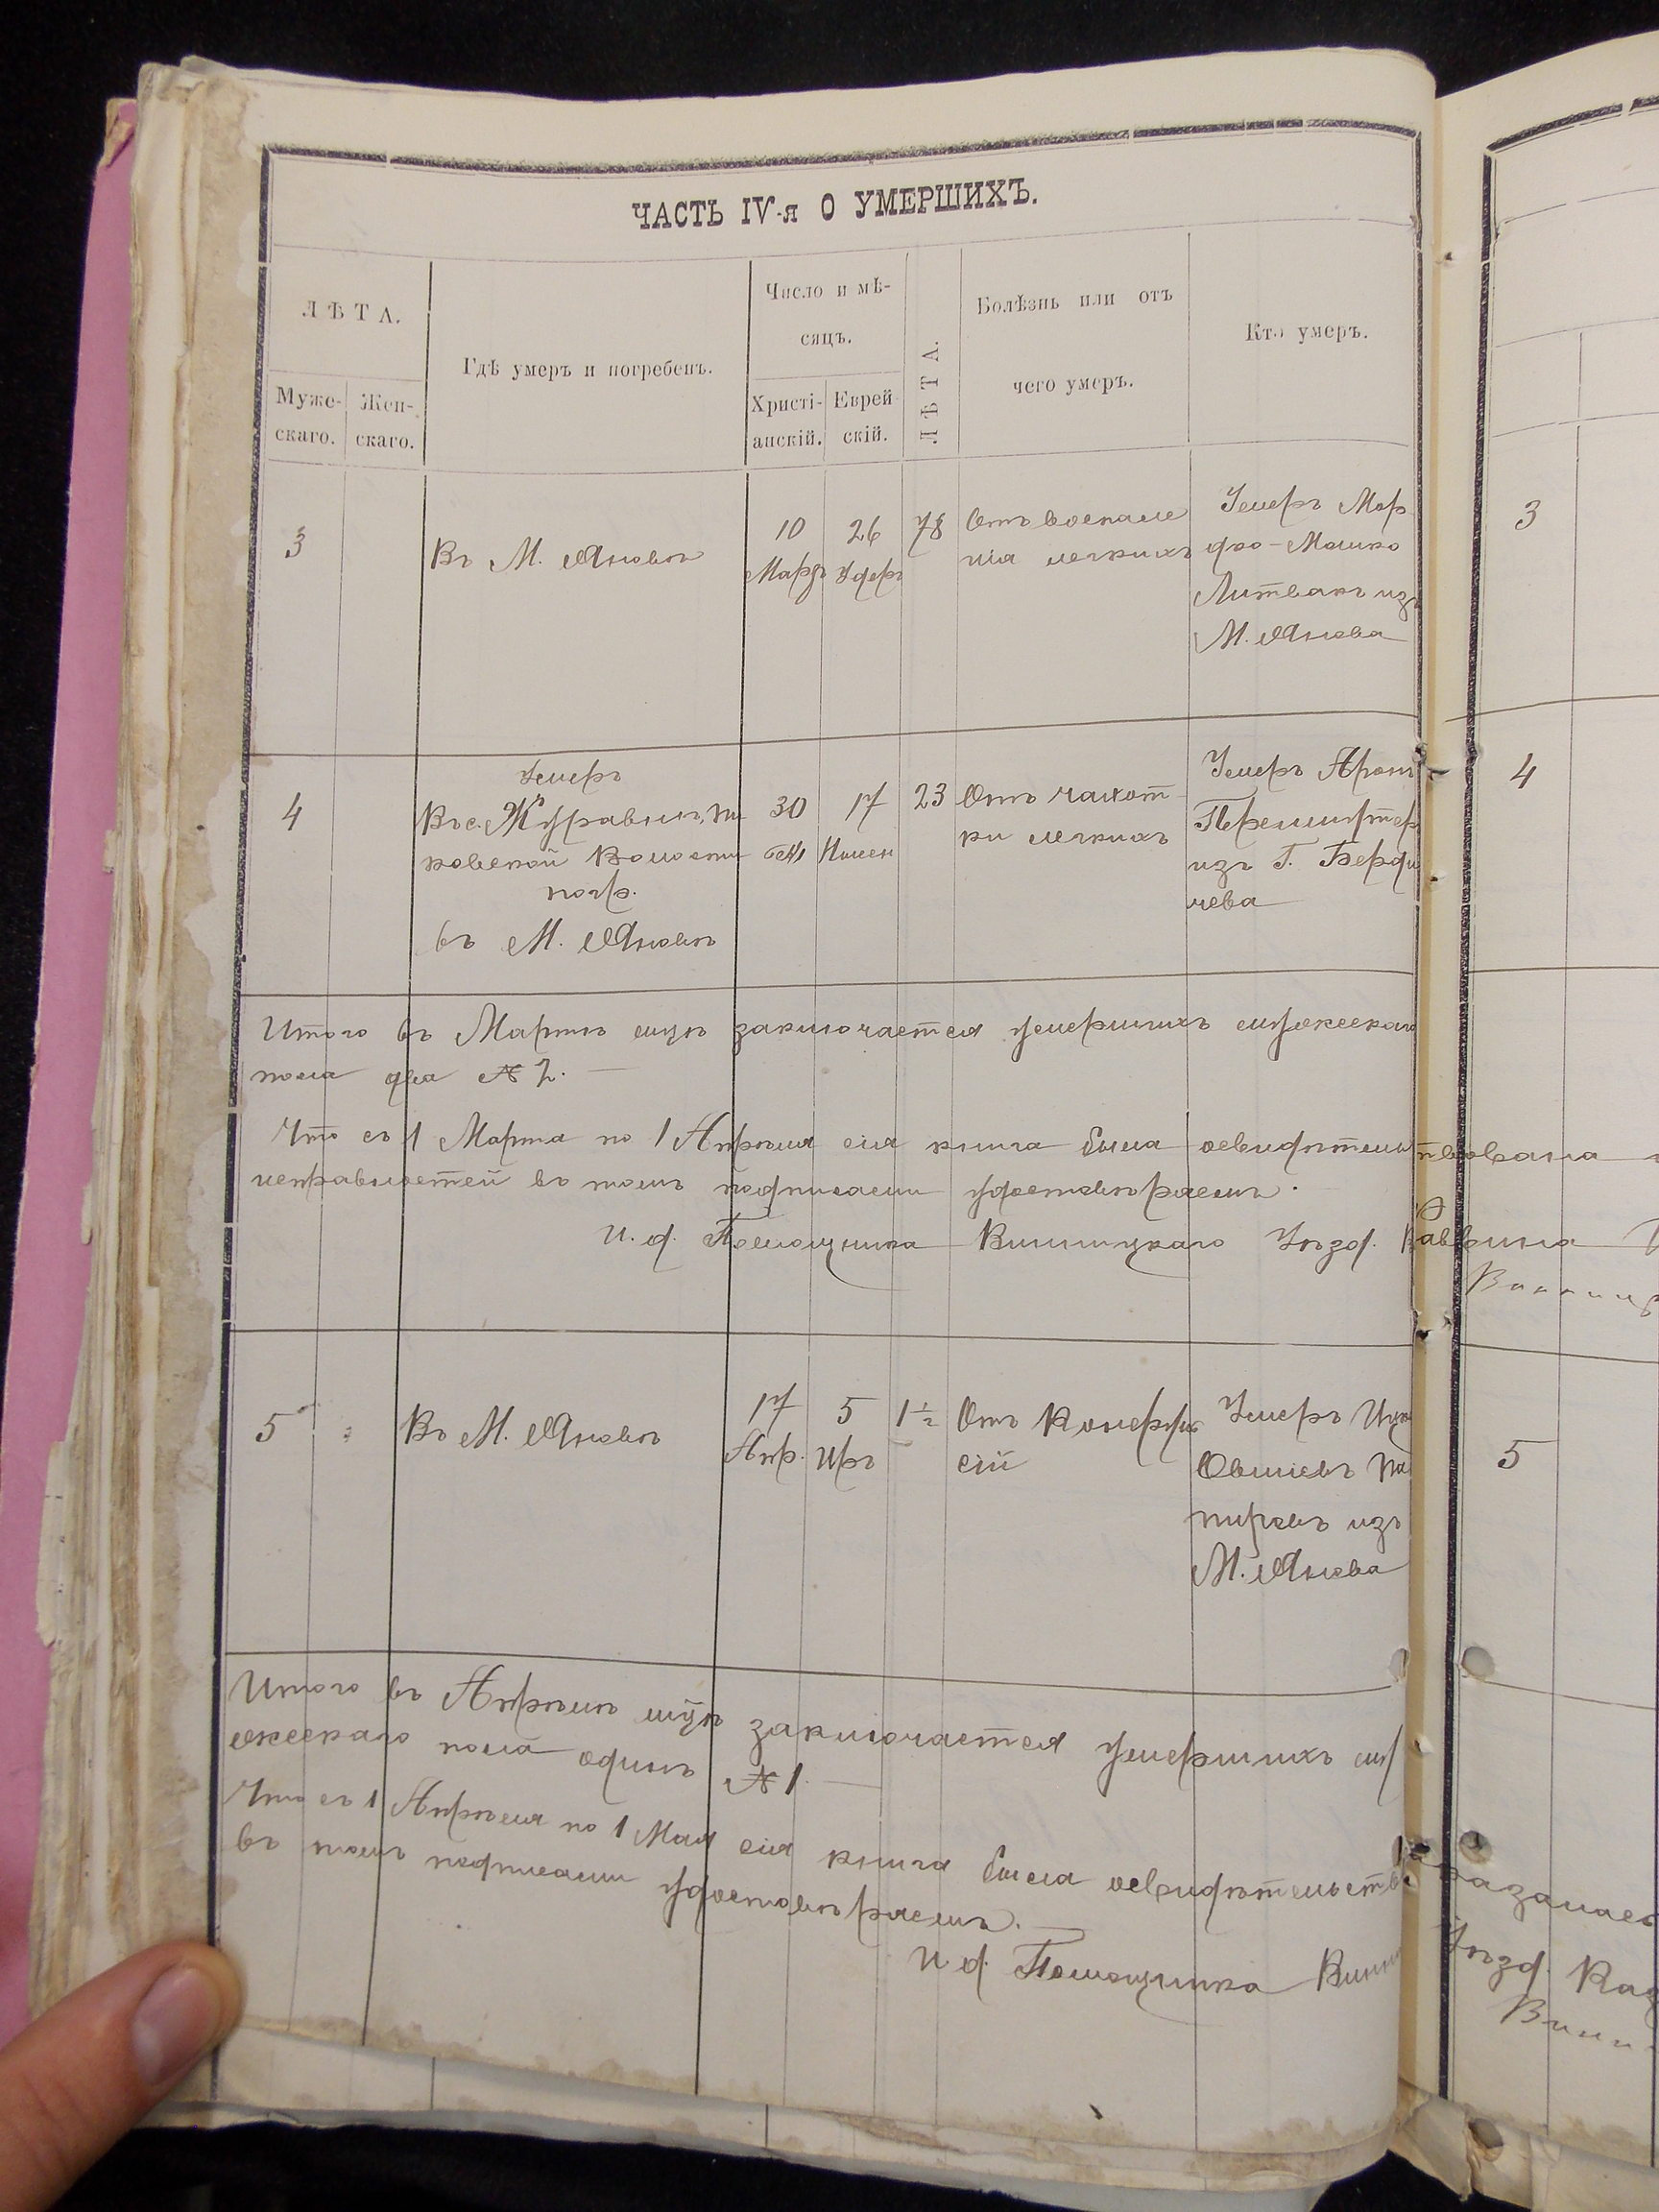 ЧАСТЬ IV-я О УМЕРШИХЪ.
ЛѢТА.
Муже-
скаго.
Жен-
скаго.
Гдѣ умеръ и погребенъ.
Число и мѣ-
сяцъ.
Христі-
анскій.
Еврей
скій.
ЛѢТА.
Болѣзнь или отъ
чего умеръ.
Кто умеръ.
3
Въ М. Яновѣ
10
Мар
26
Удеръ
78
Отъ воспале
нія легкихъ
Умеръ Мор
дко-Мошко
Литвакъ изъ
М. Янова
3
4
Умеръ
Въ с. Журавнѣ,
ковской Волости
погр.
въ М. Яновѣ
30
17
Нисен
23
Отъ чахот
ки легкихъ
Умеръ Аронъ
из Г. Берди
чева
4
Итого въ Мартѣ мцѣ заключается умершихъ мужескаго
пола два № 2.
Что съ 1 Марта по 1 Апрѣля сія книга была освидѣтельствована
исправностей въ томъ подписами удостовѣряемъ.
И. д. Помощника Винницкаго Уѣзд. Раввина
5
Въ М. Яновѣ
17
Апр.
5
Иръ
1½
Отъ
сій
Умеръ Ицк
Овшіевъ Па
пировъ изъ
М. Янова
5
Итого въ Апрѣлѣ мцѣ заключается умершихъ му
жескаго пола одинъ № 1.
Что съ 1 Апрѣля по 1 Мая сія книга была освидѣтельств
въ томъ подписами удостовѣряемъ.
И. д. Помощника Винн
Уѣзд.